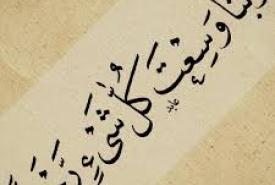 وَسِعْتَ كُلَّ شَيْءٍ